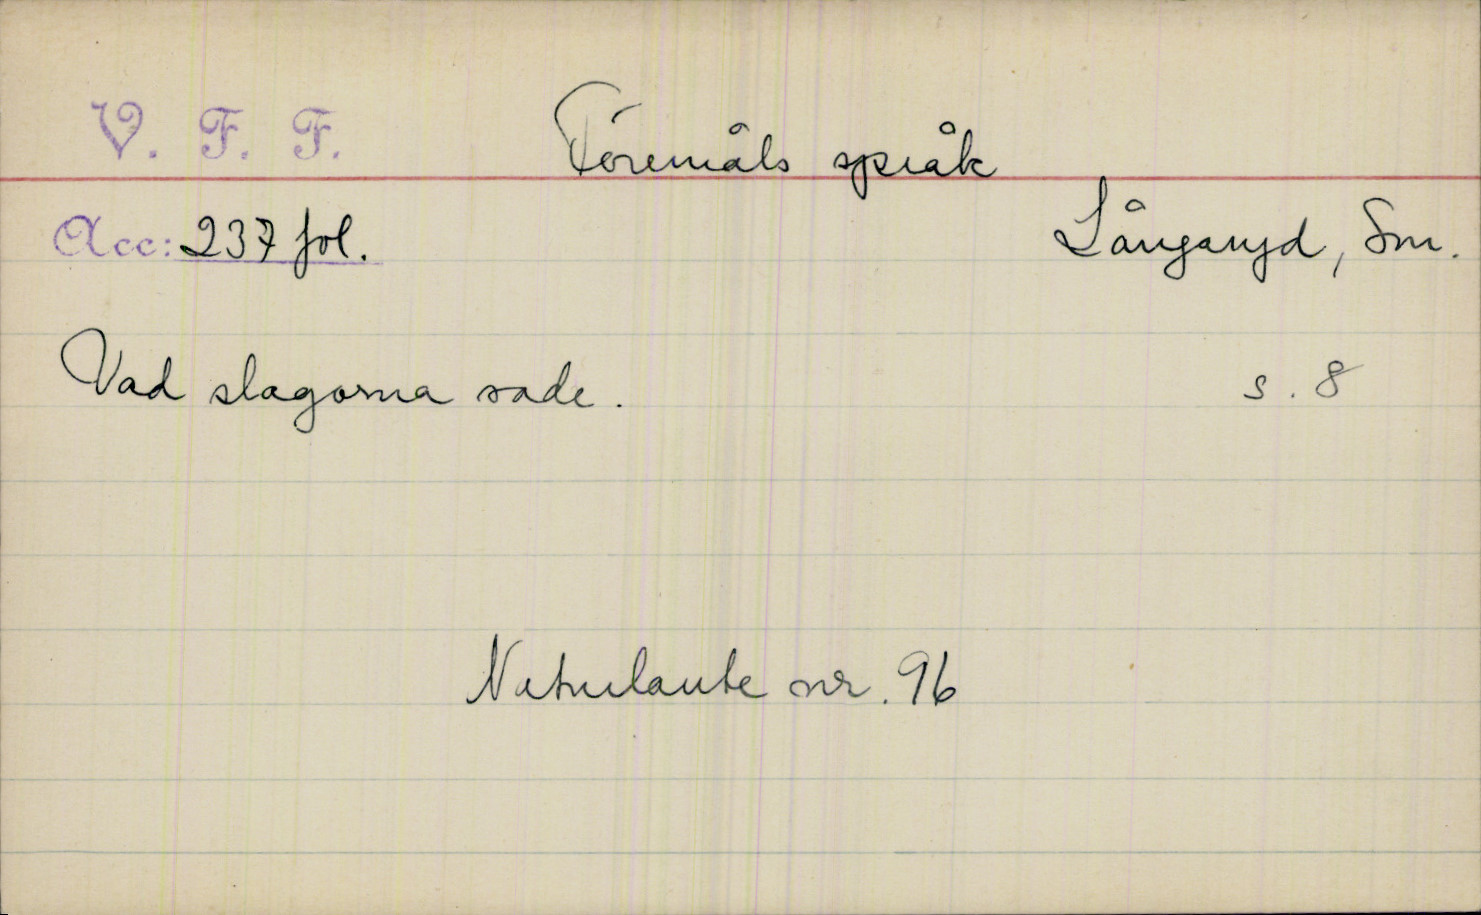 V. F. F.
Föremåls språk
Acc: 237 fol.
Långaryd, Sm.
Vad slagorna sade. s. 8
Naturlaute nr. 96